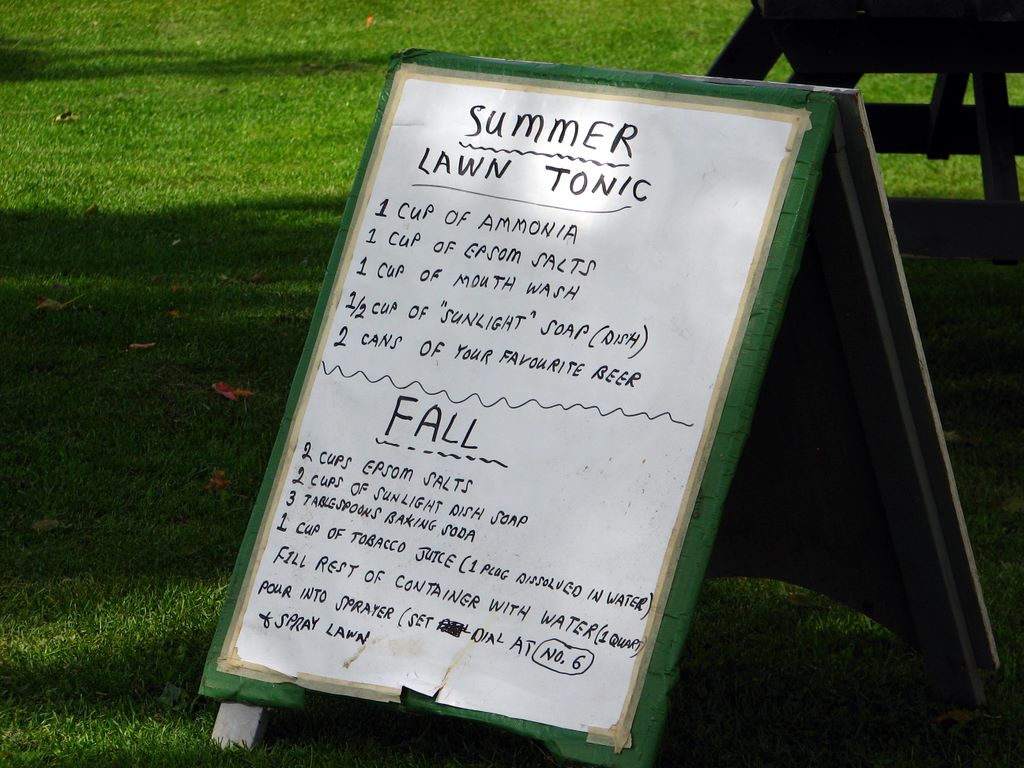 SUMMER
LAWN TONIC
1 CUP OF AMMONIA
1 CUP OF EPSOM SALTS
1 CUP OF MOUTH WASH
1/2 CUP OF "SUNLIGHT" SOAP (DISH)
2 CANS OF YOUR FAVOURITE BEER
FALL
2 CUPS EPSOM SALTS
2 CUPS OF SUNLIGHT DISH SOAP
3 TABLESPOONS BAKING SODA
1 CUP OF TOBACCO JUICE (1 PLUG DISSOLVED IN WATER)
FILL REST OF CONTAINER WITH WATER (1 QUART
POUR INTO SPRAYER (SET DIAL AT NO. 6
& SPRAY LAWN